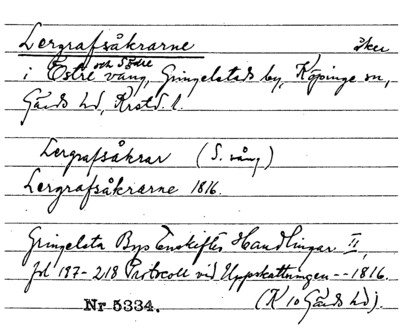 Lergrafsåkrarne åker
och Södre
i Östre vång, Gringelstads by, Köpinge sn,
Gärds hd, Krstds. l.
Lergrafsåkrar (S. vång)
Lergrafsåkrarne 1816.
Gringelsta Bys Enskiftes Handlingar II,
fol 197-218 Protocoll vid Uppskattningen -- 1816.
Nr 5334. (K 10 Gärds hd).